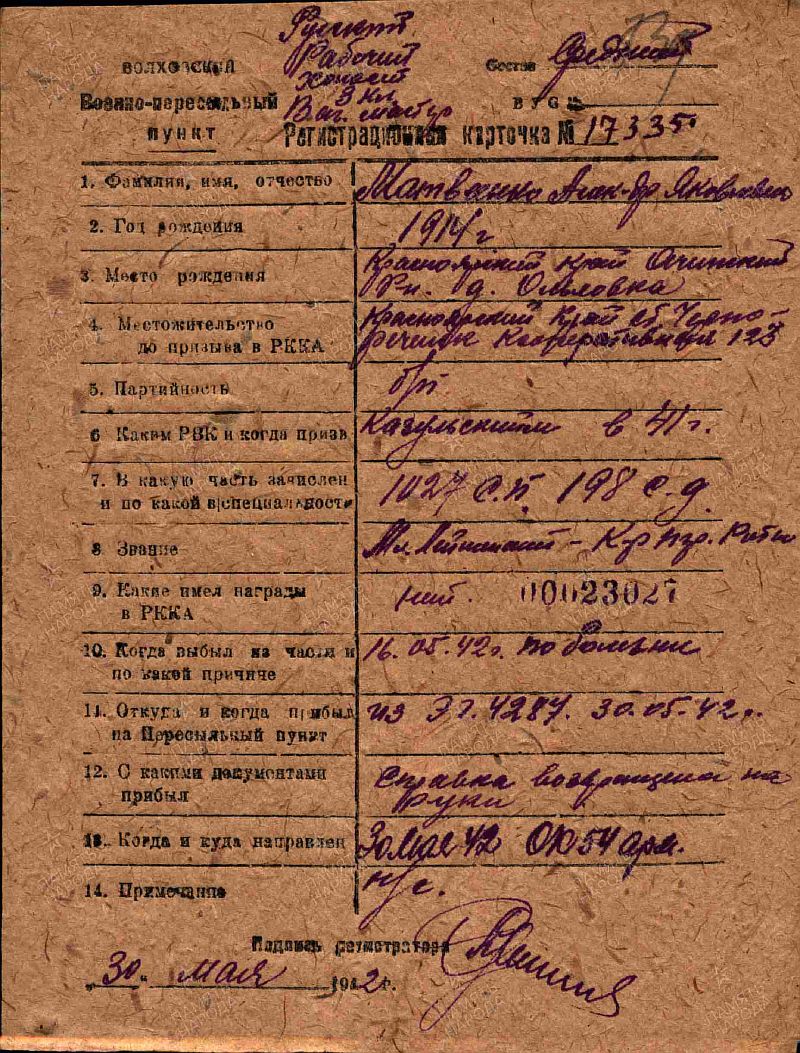 Русский
Рабочий
холост
3 кл.
Ваг. мастер
ВОЛХОВСКИЙ
Военно-пересыльный
пункт
Состав Средний
ВУС №
Регистрационная карточка № 17335
1. Фамилия, имя, отчество Матвеенко Алек-др Яковлевич
2. Год рождения 1914 г
3. Место рождения Красноярский край Ачинский
Рн. д.
4. Местожительство Красноярский Край ст Черно-
до призыва в РККА речинск Кооперативная 123
5. Партийность б/п
6 Каким РВК и когда призв Казульским в 41 г.
7. В какую часть зачислен
и по какой в|специальности 1027 с.п. 198 с.д.
8 Звание Мл. Лейтенант – К-р пзр. Роты
9. Какие имел награды
в РККА нет. 00023027
10. Когда выбыл из части и 16.05.42 г. по болезни
по какой причине
11. Откуда и когда прибыл из ЭГ. 4287. 30.05.42 г.
на Пересыльный пункт
12. С какими документами Справка возвращена на
прибыл руки
13. Когда и куда направлен 30 мая 42 ОК 54 арм.
14. Примечание н/с.
Подпись регистратора
„30" мая 1942 г.